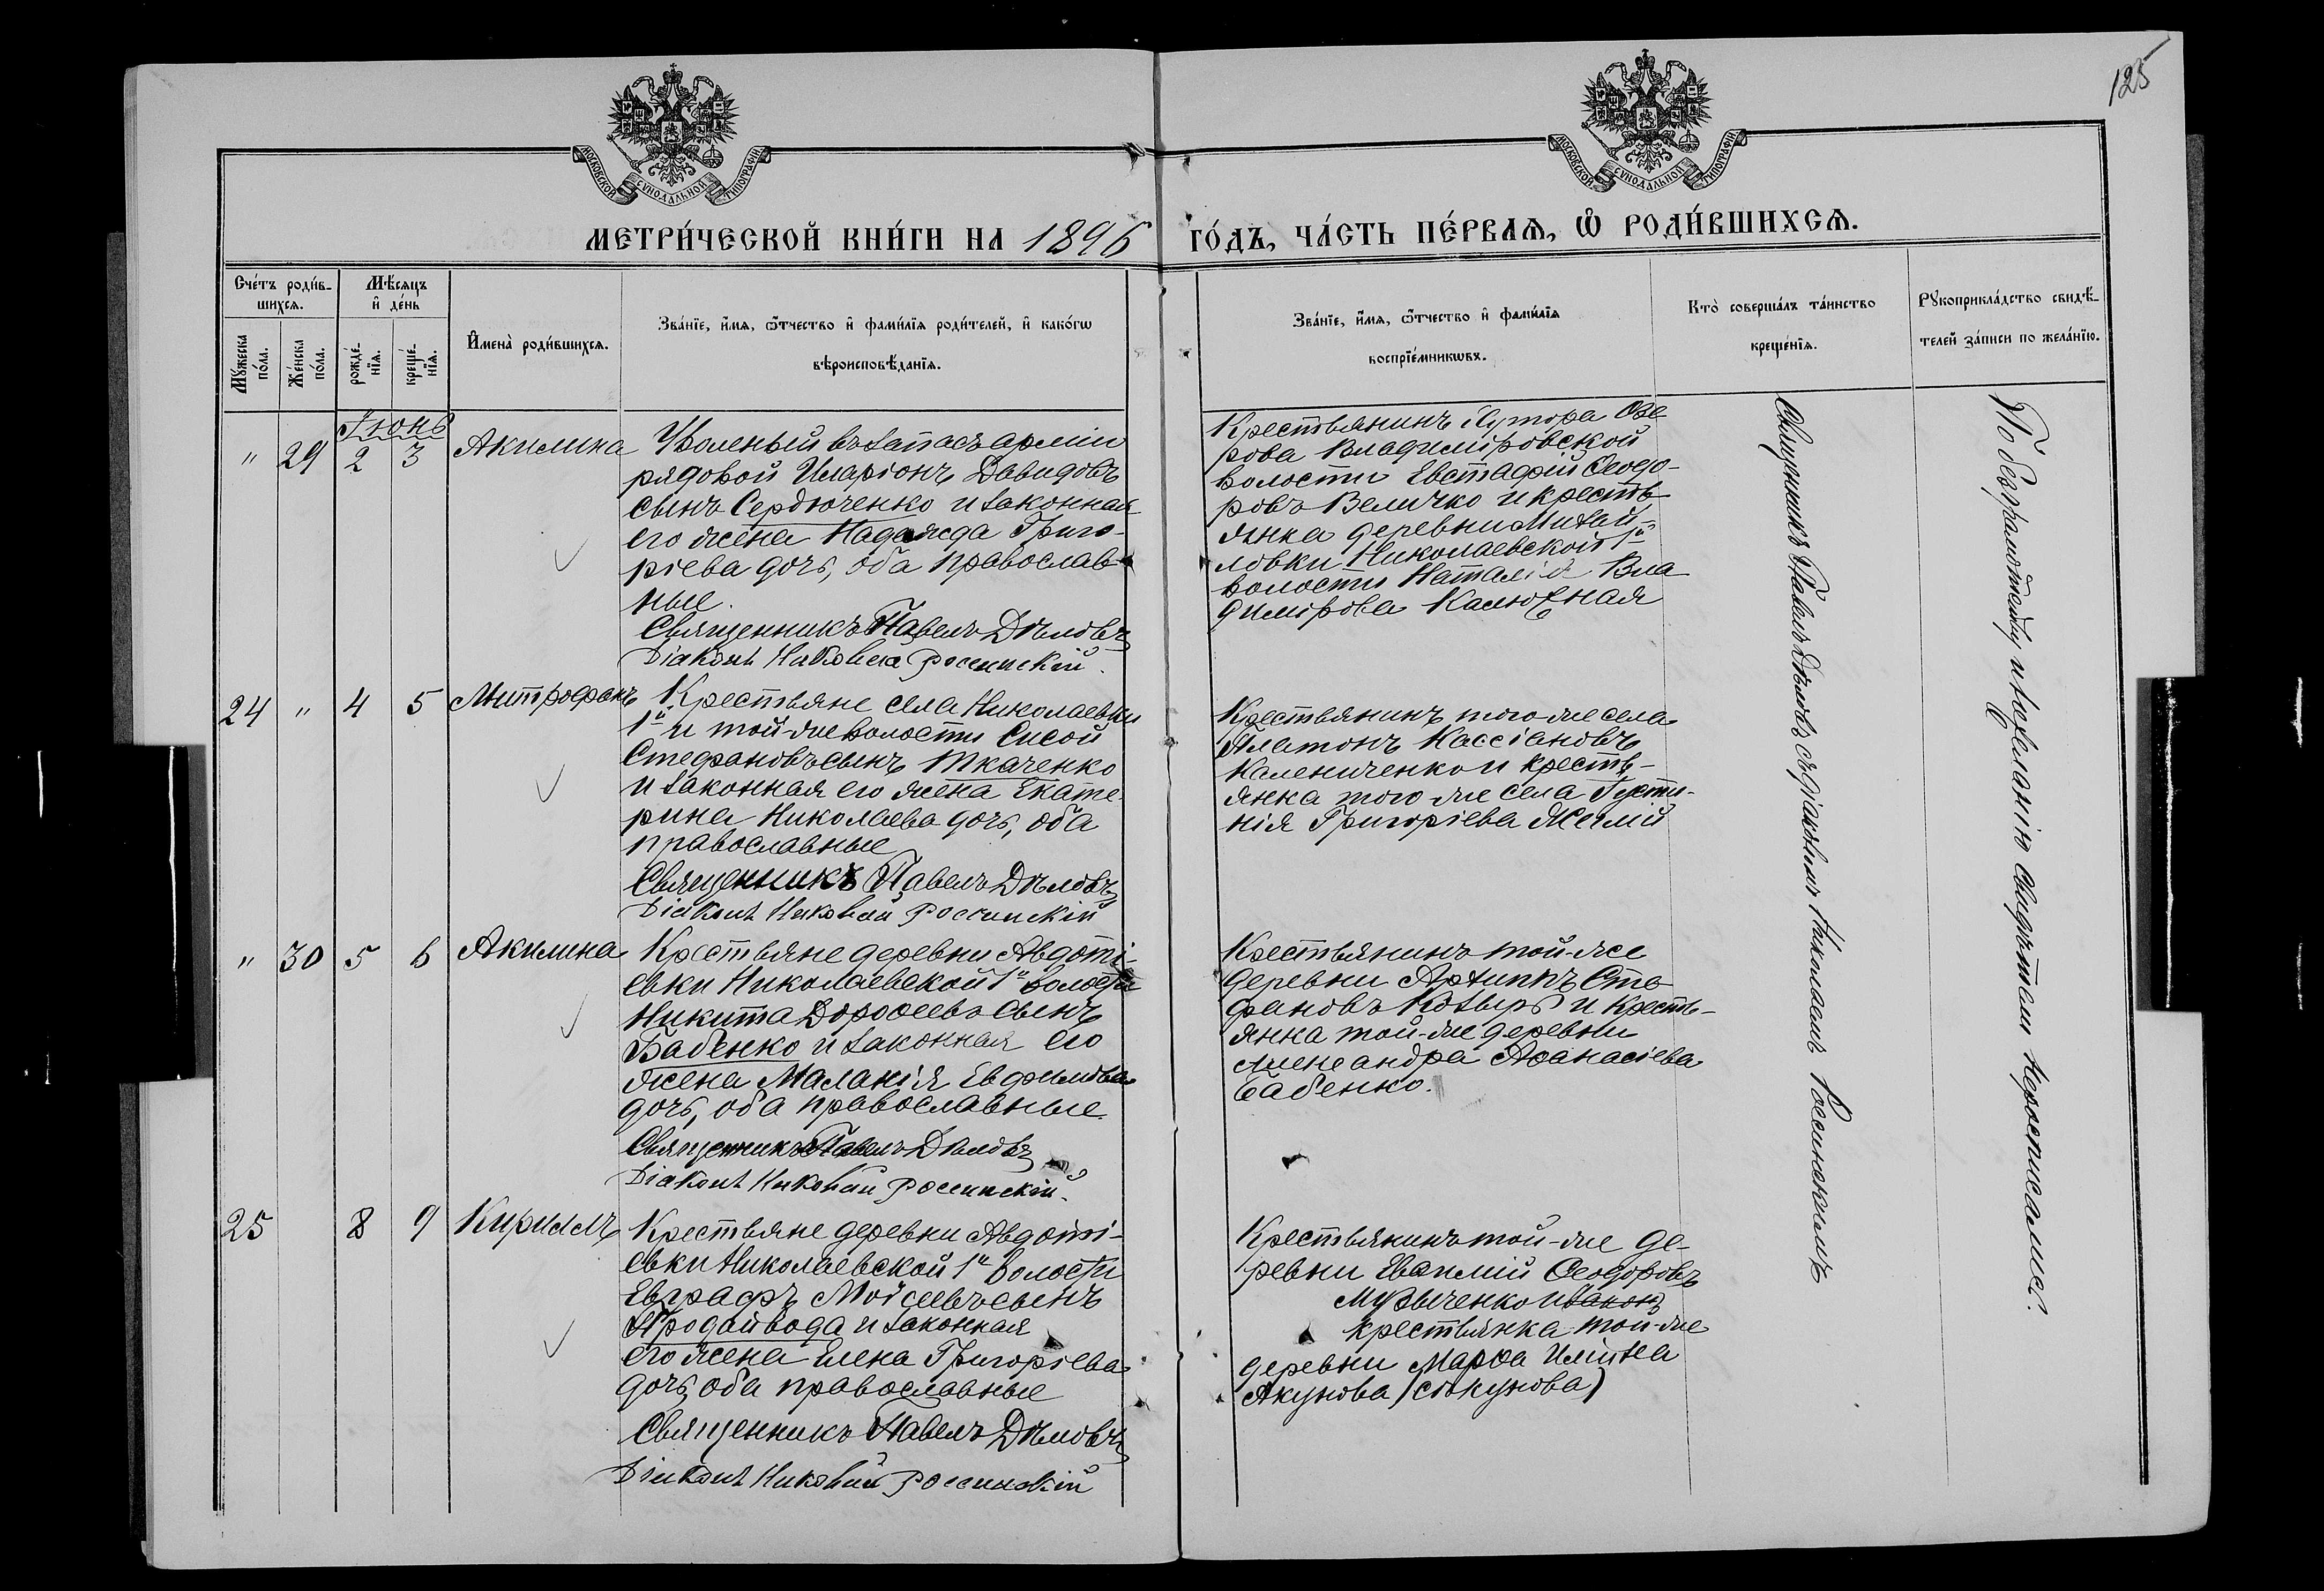 125
МОСКОВСКОЙ СѴНОДАЛЬНОЙ ТИПОГРАФІИ
МОСКОВСКОЙ СѴНОДАЛЬНОЙ ТИПОГРАФІИ
МЕТРИ́ЧЕСКОЙ КНИ́ГИ НА 1896 ГО́ДЪ, ЧА́СТЬ ПЕ́РВАѦ, Ѡ҆ РОДИ́ВШИХСѦ.
Сче́тъ роди́в-
шихсѧ.
Мꙋ́жеска
по́ла.
Же́нска
по́ла.
Мѣ́сѧцъ
и҆ де́нь
рожде́-
нїѧ.
креще́-
нїѧ.
И҆мена̀ роди́вшихсѧ.
Зва́нїе, и҆́мѧ, ѻ҆́тчество и҆ фами́лїѧ роди́телей, и҆ како́гѡ
вѣроисповѣ́данїѧ.
Зва́нїе, и҆́мѧ, ѻ҆́тчество и҆ фами́лїѧ
воспрїе́мникѡвъ.
Кто̀ соверша́лъ та́инство
креще́нїѧ.
Рꙋкоприкла́дство свидѣ́-
телей за́писи по жела́нїю.
Іюнь
" 29 2 3 Акилина
Уволеный въ запасъ арміи
рядовой Иларіонъ Давидовъ
сынъ Сердюченко и законная
его жена Надежда Григо-
ріева дочь, оба православ-
ные.
Священникъ Павелъ Дѣловъ
Діаконъ Николай Россинскій.
Крестьянинъ хутора Озе-
рова Владимировской
волости Евстафій Ѳеодо-
ровъ Величко и кресть-
янка деревни Михай-
ловки Николаевской 1й
волости Наталія Вла-
димірова Калюжная
24 " 4 5 Митрофанъ
Крестьяне села Николаевки
1й и той-же волости Сисой
Стефановъ сынъ Ткаченко
и законная его жена Екате-
рина Николаева дочь, оба
православные
Священникъ Павелъ Дѣловъ
Діаконъ Николай Россинскій
Крестьянинъ того-же села
Платонъ Кассіановъ
Калениченко и кресть-
янка того-же села Густи-
нія Григоріева
" 30 5 6 Акилина
Крестьяне деревни Авдоті-
евки Николаевской 1й волости
Никита Дороѳеевъ сынъ
Бабенко и законная его
жена Маланія Евфимова
дочь, оба православные.
Священникъ Павелъ Дѣловъ
Діаконъ Николай Россинскій.
Крестьянинъ той-же
деревни Архиппъ Сте-
фановъ Козырь и кресть-
янка той-же деревни
Александра Аѳанасіева
Бабенко.
25 8 9 Кириллъ
Крестьяне деревни Авдоті-
евки Николаевской 1й волости
Евграфъ Моѵсеевъ сынъ
Продайвода и законная
его жена Елена Григоріева
дочь, оба православные
Священникъ Павелъ Дѣловъ
Діаконъ Николай Россинскій
Крестьянинъ той-же де-
ревни Ѳеодоровъ
и законъ
крестьянка той-же
деревни Марѳа Иліина
Акунова
Священникъ Павелъ Дѣловъ съ діакономъ Николаемъ Россинскимъ
По безграмотству и нежеланію свидѣтели не росписались.